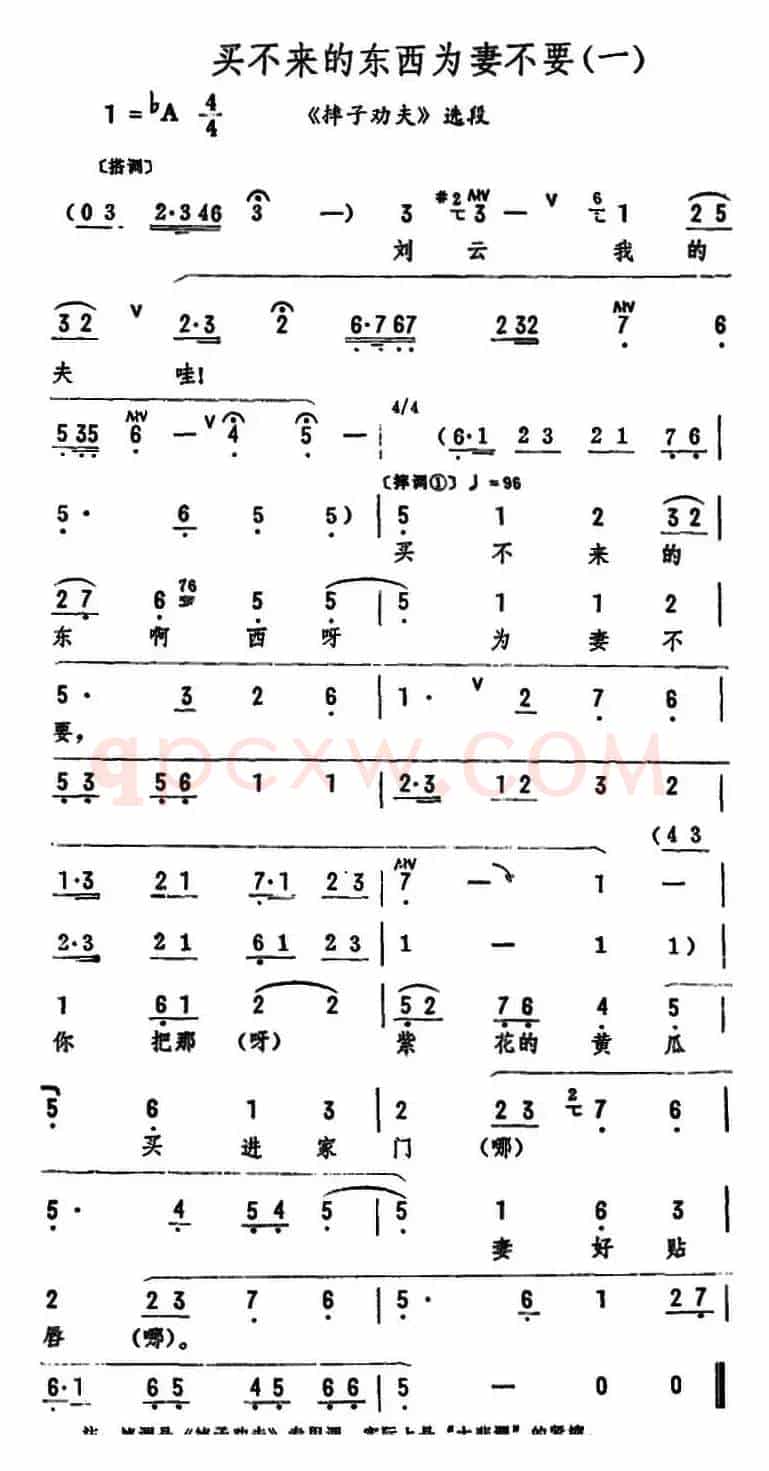 买不来的东西为妻不要(一)
1=♭A 4/4 《摔子劝夫》选段
〔搭调〕
(0 3 2·346 3 —) 3 #2 3 — ∨ 6 1 2 5
刘 云 我 的
3 2 ∨ 2·3 2 6·7 67 2 32 7 6
夫 哇!
5 35 6 — ∨ 4 5 — 4/4 (6·1 2 3 2 1 7 6 |
〔摔调①〕♩=96
5· 6 5 5) | 5 1 2 3 2 |
买 不 来 的
2 7 6 76 5 5 | 5 1 1 2 |
东 啊 西 呀 为 妻 不
5· 3 2 6 | 1· ∨ 2 7 6 |
要,
qpcxw.COM
5 3 5 6 1 1 | 2·3 1 2 3 2 |
(4 3
1·3 2 1 7·1 2 3 | 7 — 1 — |
2·3 2 1 6 1 2 3 | 1 — 1 1) |
1 6 1 2 2 | 5 2 7 6 4 5 |
你 把那 (呀) 紫 花的 黄 瓜
5 6 1 3 | 2 2 3 2 7 6 |
买 进 家 门 (哪)
5· 4 5 4 5 | 5 1 6 3 |
妻 好 贴
2 2 3 7 6 | 5· 6 1 2 7 |
唇 (哪)。
6·1 6 5 4 5 6 6 | 5 — 0 0 ‖